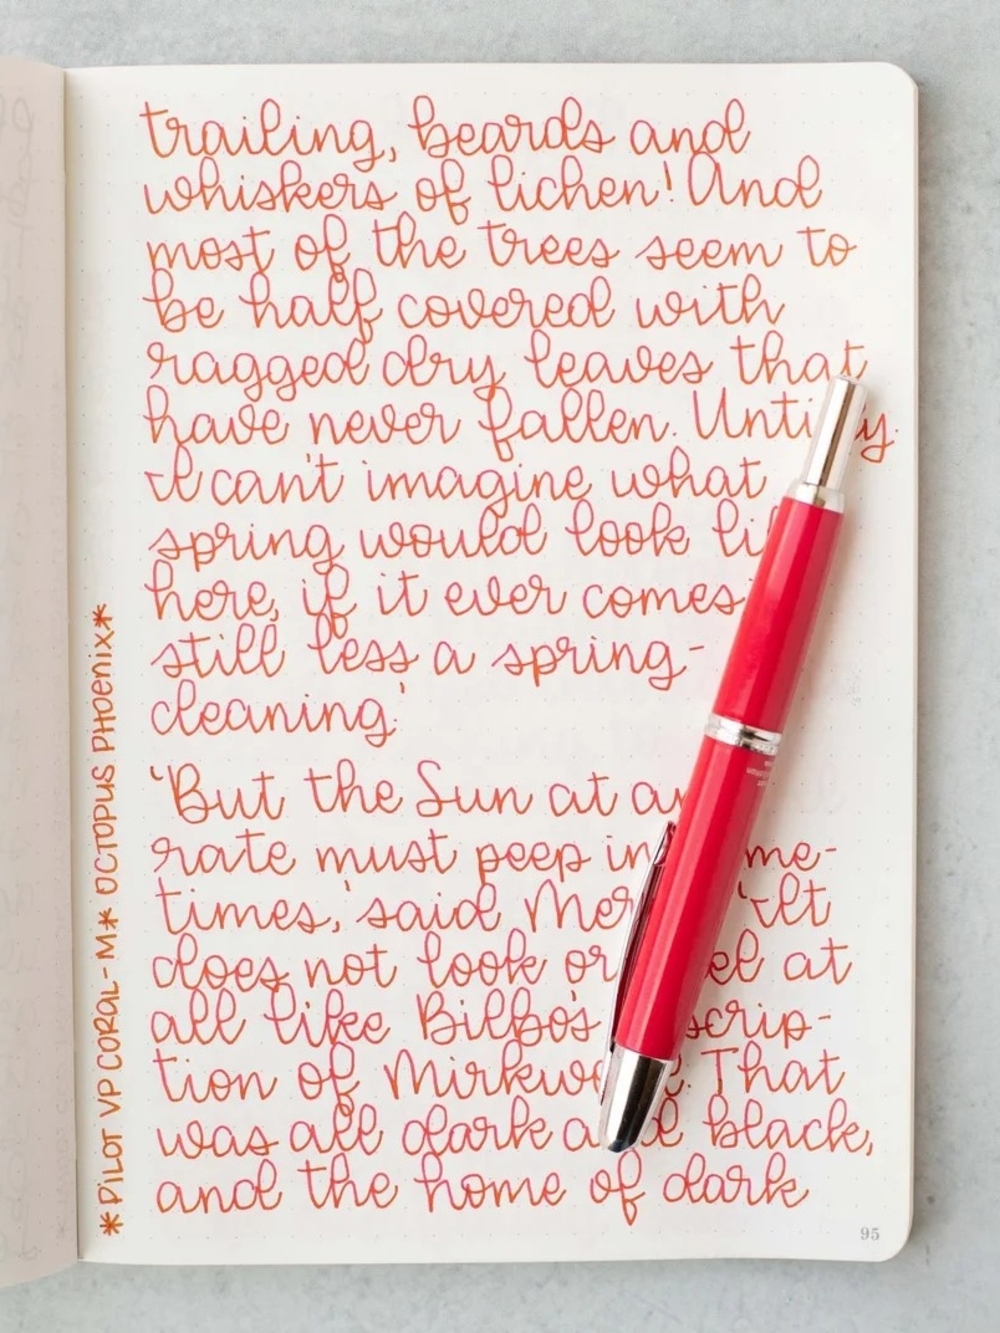 trailing, beards and
whiskers of lichen! And
most of the trees seem to
be half covered with
ragged dry leaves that
have never fallen. Untidy.
I can't imagine what
spring would look li
here, if it ever comes
still less a spring-
cleaning.'
'But the Sun at an
rate must peep in me-
times,' said Mer 'It
does not look or el at
all like Bilbo's scrip-
tion of Mirkwo . That
was all dark and black,
and the home of dark
*PILOT VP CORAL-M* OCTOPUS PHOENIX*
95